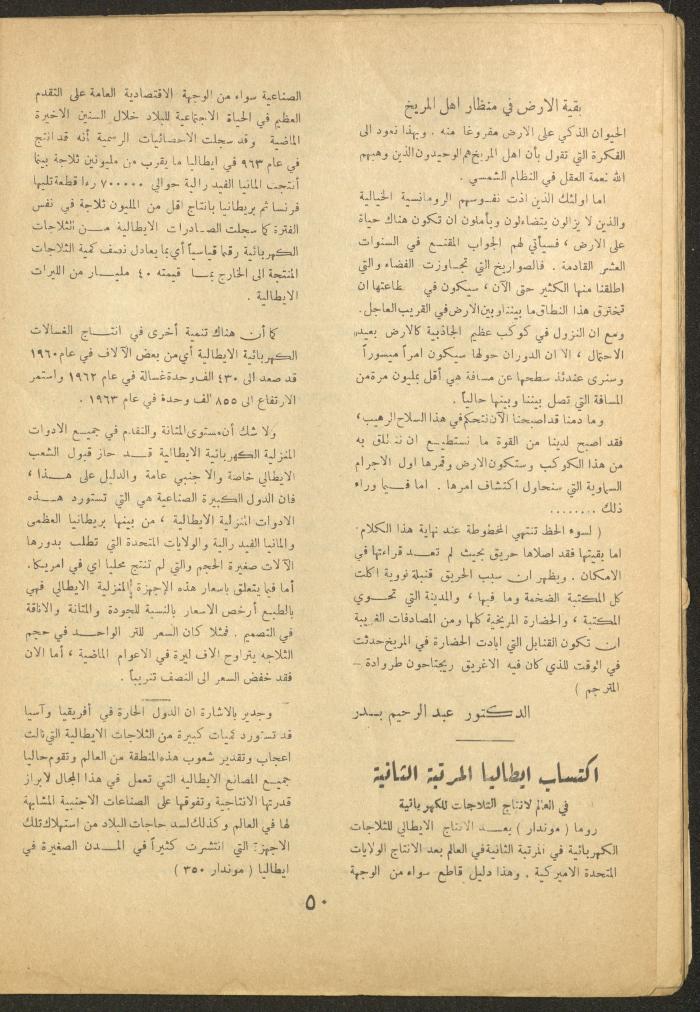 بقية الارض في منظار اهل المريخ
الحيوان الذكي على الارض مفروغا منه . وبهذا نعود الى
الفكرة التي تقول بأن اهل المريخ هم الوحيدون الذين وهبهم
الله نعمة العقل في النظام الشمسي .
اما اولئك الذين اذت نفوسهم الرومانسية الخيالية
والذين لا يزالون يتضاءلون ويأملون ان تكون هناك حياة
على الارض ، فسيأتي لهم الجواب المقنع في السنوات
العشر القادمة . فالصواريخ التي تجاوزت الفضاء والتي
اطلقنا منها الكثير حتى الآن ، سيكون في طاعتها ان
تخترق هذا النطاق ما بيننا وبين الارض في القريب العاجل .
ومع ان النزول في كوكب عظيم الجاذبية كالارض بعيد
الاحتمال ، الا ان الدوران حولها سيكون امراً ميسوراً
وسنرى عندئذ سطحها عن مسافة هي أقل بمليون مرة من
المسافة التي تصل بيننا وبينها حالياً .
وما دمنا قد اصبحنا الآن نتحكم في هذا السلاح الرهيب ،
فقد اصبح لدينا من القوة ما نستطيع ان ننطلق به
من هذا الكوكب وستكون الارض وقمرها اول الاجرام
السماوية التي سنحاول اكتشاف امرها . اما فيما وراء
ذلك ........
( لسوء الحظ تنتهي المخطوطة عند نهاية هذا الكلام .
اما بقيتها فقد اصلاها حريق بحيث لم تعد قراءتها في
الامكان . ويظهر ان سبب الحريق قنبلة نووية اكلت
كل المكتبة الضخمة وما فيها ، والمدينة التي تحوي
المكتبة ، والحضارة المريخية كلها ومن المصادفات الغريبة
ان تكون القنابل التي ابادت الحضارة في المريخ حدثت
في الوقت للذي كان فيه الاغريق يجتاحون طروادة –
المترجم )
الدكتور عبد الرحيم بدر
اكتساب ايطاليا المرتبة الثانية
في العالم لانتاج الثلاجات للكهربائية
روما ( موندار ) بعد الانتاج الايطالي للثلاجات
الكهربائية في المرتبة الثانية في العالم بعد الانتاج الولايات
المتحدة الاميركية . وهذا دليل قاطع سواء من الوجهة
الصناعية سواء من الوجهة الاقتصادية العامة على التقدم
العظيم في الحياة الاجتماعية للبلاد خلال السنين الاخيرة
الماضية وقد سجلت الاحصائيات الرسمية أنه قد انتج
في عام ٩٦٣ في ايطاليا ما يقرب من مليونين ثلاجة بينما
أنتجت المانيا الفيدرالية حوالي ٧٠٠٠٠٠ قطعة تليها
فرنسا ثم بريطانيا بانتاج اقل من المليون ثلاجة في نفس
الفترة كما سجلت الصادرات الايطالية من الثلاجات
الكهربائية رقما قياسياً أي بما يعادل نصف كمية الثلاجات
المنتجة الى الخارج بما قيمته ٤٠ مليار من الليرات
الايطالية .
كما أن هناك تنمية أخرى في انتاج الغسالات
الكهربائية الايطالية أي من بعض الآلاف في عام ١٩٦٠
قد صعد الى ٤٣٠ الف وحدة غسالة في عام ١٩٦٢ واستمر
الارتفاع الى ٨٥٥ الف وحدة في عام ١٩٦٣ .
ولا شك أن مستوى المتانة والتقدم في جميع الادوات
المنزلية الكهربائية الايطالية قد حاز قبول الشعب
الايطالي خاصة والاجنبي عامة والدليل على هذا ،
فان الدول الكبيرة الصناعية هي التي تستورد هذه
الادوات المنزلية الايطالية ، من بينها بريطانيا العظمى
والمانيا الفيدرالية والولايات المتحدة التي تطلب بدورها
الآلات صغيرة الحجم والتي لم تنتج محليا اي في امريكا .
أما فيما يتعلق باسعار هذه الاجهزة المنزلية الايطالي فهي
بالطبع أرخص الاسعار بالنسبة للجودة والمتانة والاناقة
في التصميم . فمثلا كان السعر للتر الواحد في حجم
الثلاجه يتراوح الاف ليرة في الاعوام الماضية ، أما الان
فقد خفض السعر الى النصف تقريباً .
وجدير بالاشارة ان الدول الحارة في أفريقيا وآسيا
قد تستورد كميات كبيرة من الثلاجات الايطالية التي نالت
اعجاب وتقدير شعوب هذه المنطقة من العالم وتقوم حاليا
جميع المصانع الايطاليه التي تعمل في هذا المجال لابراز
قدرتها الانتاجية وتفوقها على الصناعات الاجنبية المشابهة
لها في العالم وكذلك لسد حاجات البلاد من استهلاك تلك
الاجهزة التي انتشرت كثيراً في المدن الصغيرة في
ايطاليا ( موندار ٣٥٠ )
٥٠